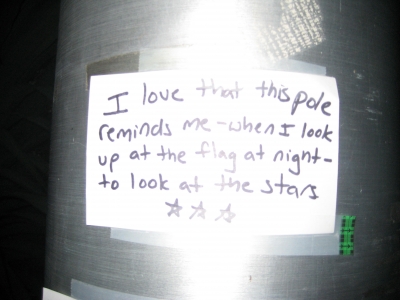 I love that this pole
reminds me - when I look
up at the flag at night -
to look at the stars
☆ ☆ ☆